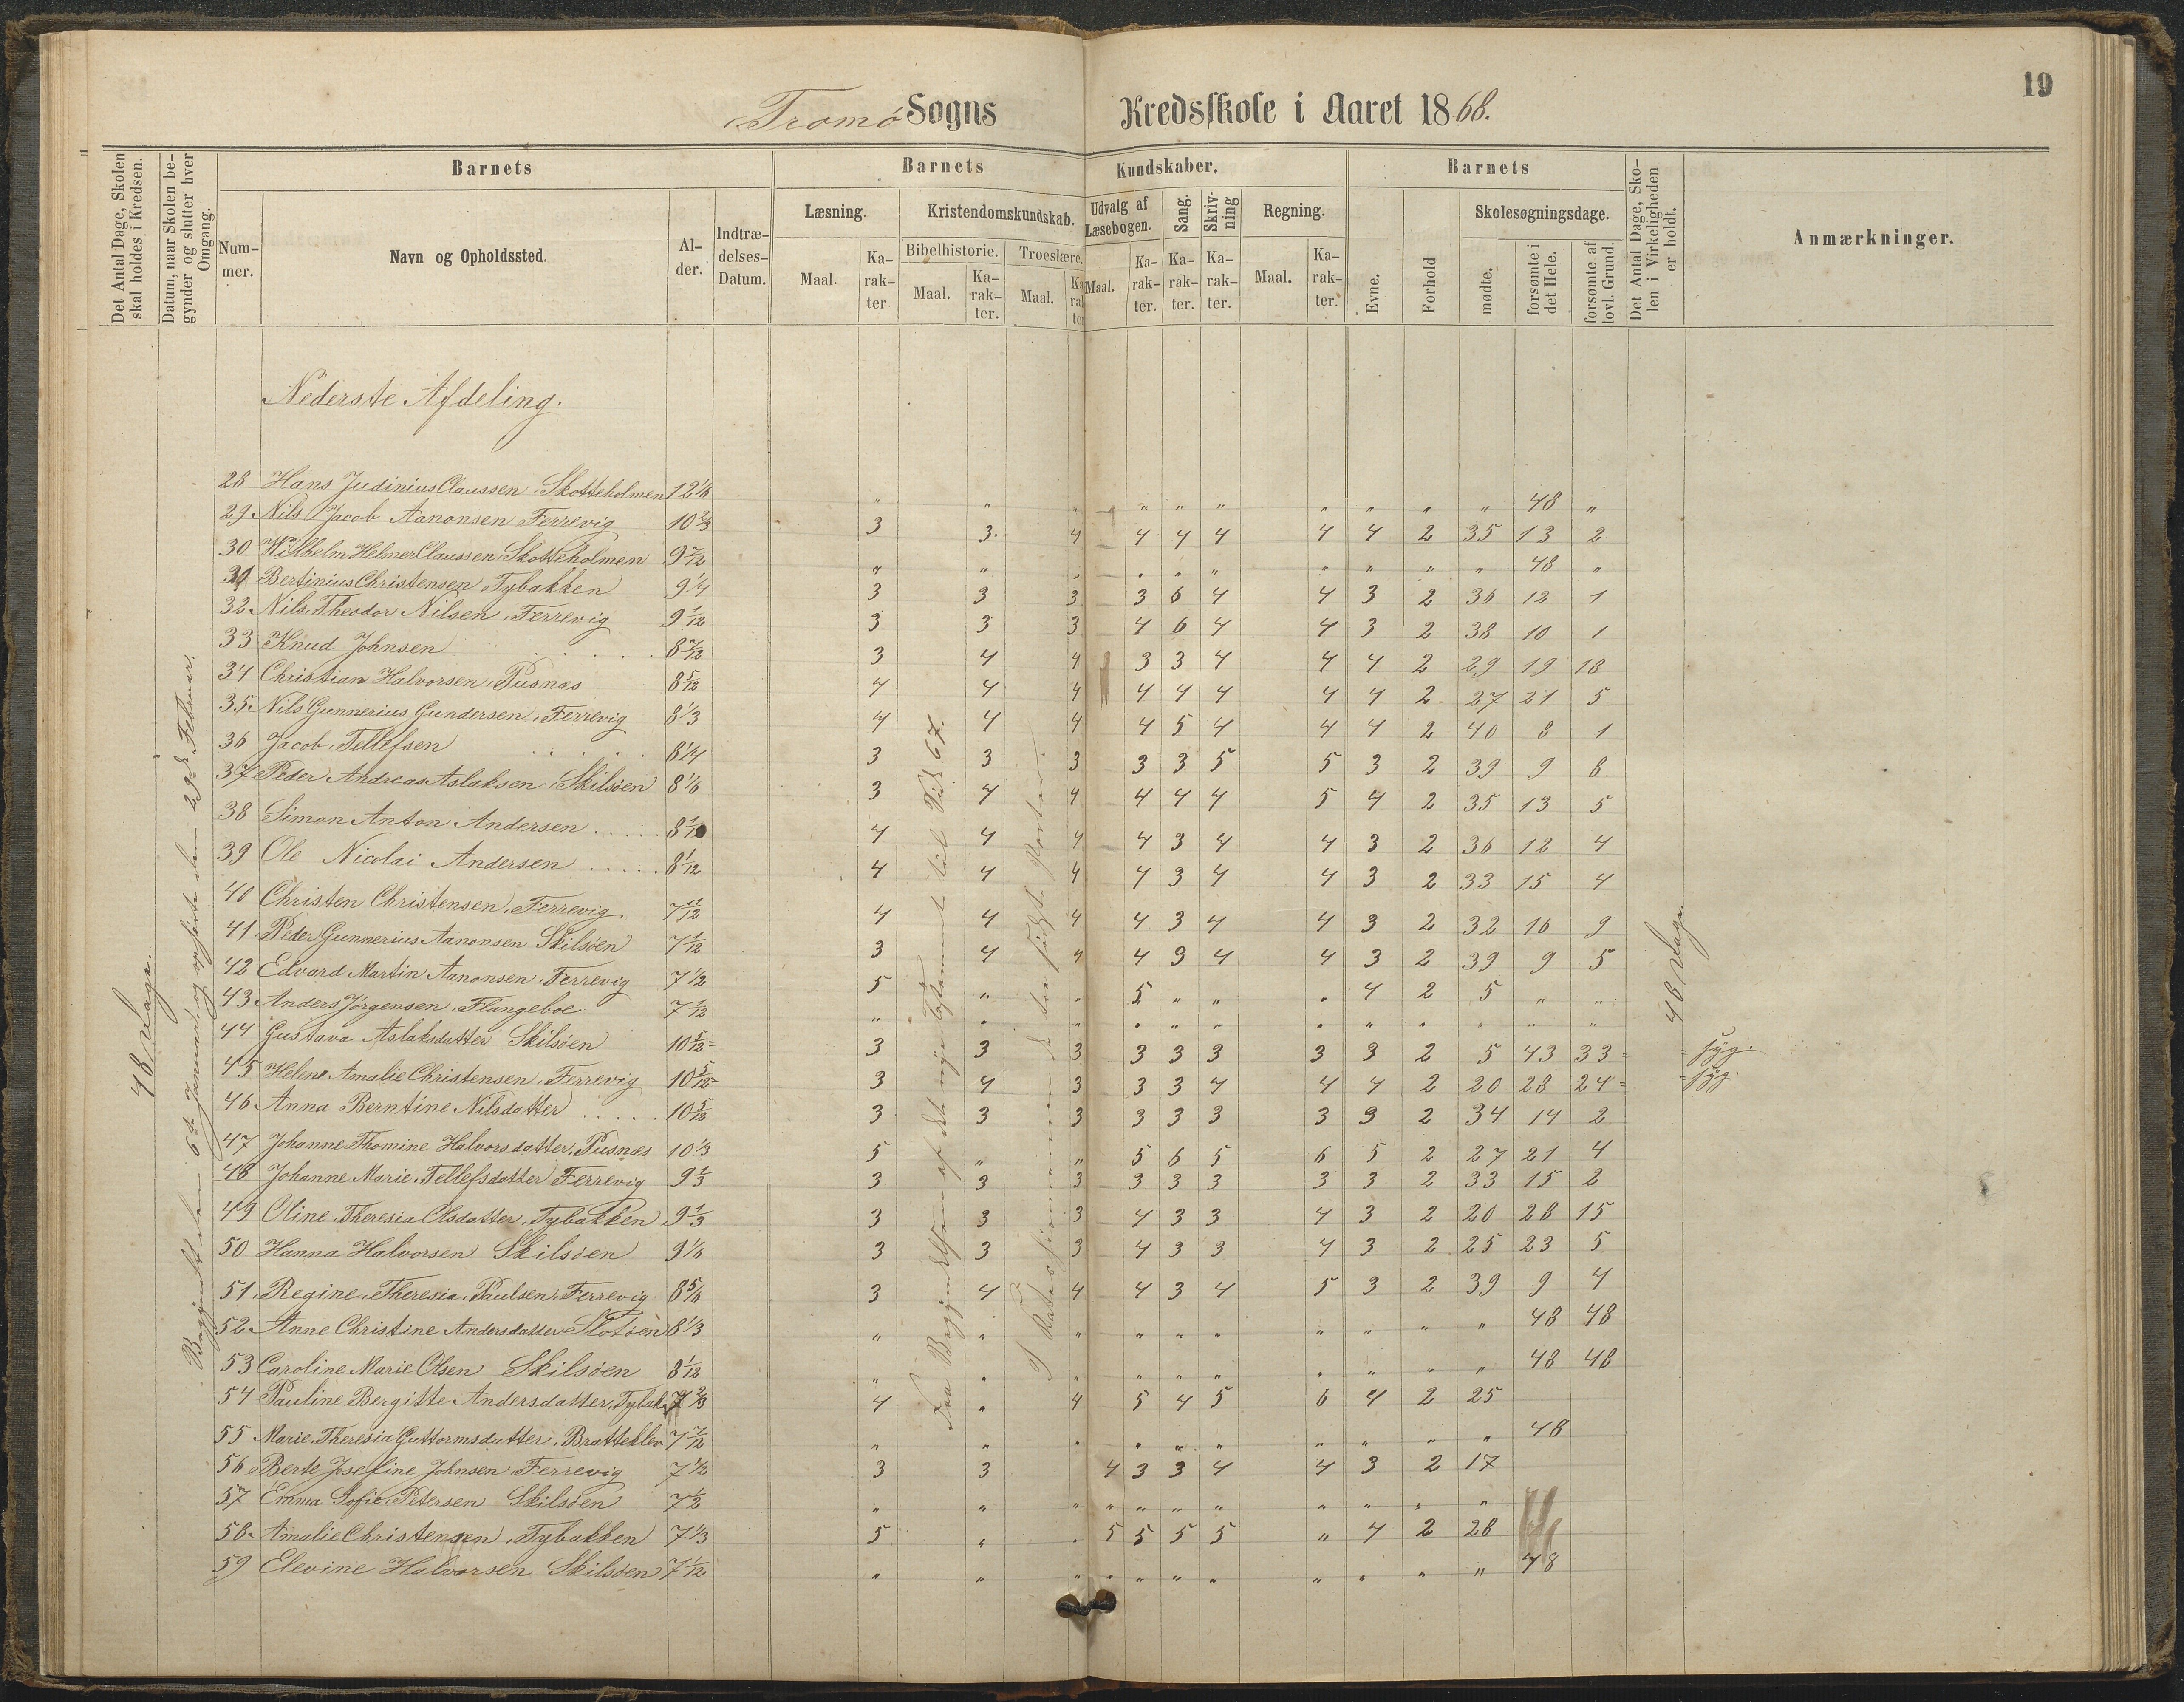 19
Tromø Sogns Kredsskole i Aaret 1868.
Det Antal Dage, Skolen skal holdes i Kredsen.
Datum, naar Skolen begynder og slutter hver Omgang.
Barnets
Barnets Kundskaber.
Barnets
Det Antal Dage, Skolen i Virkeligheden er holdt.
Anmærkninger.
Nummer.
Navn og Opholdssted.
Alder.
Indtrædelses-Datum.
Læsning.
Kristendomskundskab.
Udvalg af Læsebogen.
Sang.
Skrivning
Regning.
Evne.
Forhold
Skolesøgningsdage.
Maal.
Karakter
Bibelhistorie.
Troeslære.
Maal.
Karakter.
Maal.
Karakter
Maal.
Karakter.
Karakter.
Karakter.
Maal.
Karakter.
mødte.
forsømte i det Hele.
forsømte af lovl. Grund.
48 Dage.
Begyndt den 6te Januar og ophørte den 29de Februar.
Fra Begyndelsen af det nye Testament til
48 Dage.
Nederste Afdeling.
28 Hans Judinius Claussen Skotteholmen 12 1/6 " " " " " " " " " " 48 "
29 Nils Jacob Aanonsen Ferrevig 10 2/3 3 3 4 4 4 4 4 4 2 35 13 2
30 Wilhelm Helmer Claussen Skotteholmen 9 7/12 " " " " " " " " " " 48 "
31 Bertinius Christensen, Tybakken 9 1/4 3 3 3 3 6 4 4 3 2 36 12 1
32 Nils Theodor Nilsen, Ferrevig 9 1/12 3 3 3 4 6 4 4 3 2 38 10 1
33 Knud Johnsen . . . . . 8 7/12 3 4 4 3 3 4 4 4 2 29 19 18
34 Christian Halvorsen, Pusnæs 8 5/12 4 4 4 4 4 4 4 4 2 27 21 5
35 Nils Gunnerius Gundersen, Ferrevig 8 1/3 4 4 4 4 5 4 4 4 2 40 8 1
36 Jacob Tellefsen . . . . . 8 1/4 3 3 3 3 3 5 5 3 2 39 9 8
37 Peder Andreas Aslaksen, Skilsøen 8 1/6 3 4 4 4 4 4 5 4 2 35 13 5
38 Simon Anton Andersen . . . . . 4 4 4 4 3 4 4 3 2 36 12 4
39 Ole Nicolai Andersen . . . . . 8 1/12 4 4 4 4 3 4 4 3 2 33 15 4
40 Christen Christensen, Ferrevig 7 11/12 4 4 4 4 3 4 4 3 2 32 16 9
41 Peder Gunnerius Aanonsen Skilsøen 7 1/12 3 4 4 4 3 4 4 3 2 39 9 5
42 Edvard Martin Aanonsen, Ferrevig 7 1/2 5 " " 5 " " " 4 2 5 " "
43 Anders Jørgensen, Flangeboe 7 1/12 " " " " " " " " " " " "
44 Gustava Aslaksdatter Skilsøen 10 5/12 3 3 3 3 3 3 3 3 2 5 43 33 = syg.
45 Helene Amalie Christensen, Ferrevig 10 5/12 3 4 3 3 3 4 4 4 2 20 28 24 = syg.
46 Anna Berntine Nilsdatter . . . . . 10 5/12 3 3 3 3 3 3 3 3 2 34 14 2
47 Johanne Thomine Halvorsdatter, Pusnæs 10 1/3 5 " " 5 6 5 6 5 2 27 21 4
48 Johanne Marie Tellefsdatter Ferrevig 9 1/3 3 3 3 3 3 3 3 3 2 33 15 2
49 Oline Theresia Olsdatter, Tybakken 9 1/3 3 3 3 4 3 3 4 3 2 20 28 15
50 Hanna Halvorsen Skilsøen 9 1/6 3 3 3 4 3 3 4 3 2 25 23 5
51 Regine Theresia Paulsen, Ferrevig 8 5/6 3 4 4 4 3 4 5 3 2 39 9 4
52 Anne Christine Andersdatter 8 1/3 " " " " " " " " " " 48 48
53 Caroline Marie Olsen Skilsøen 8 1/12 " " " " " " " " " " 48 48
54 Pauline Bergitte Andersdatter, Tybak 7 2/3 4 " 4 5 4 5 6 4 2 25
55 Marie Theresia Guttormsdatter, Bratteklev 7 7/12 " " " " " " " " " " 48
56 Berte Josefine Johnsen Ferrevig 7 1/2 3 3 4 3 3 4 4 3 2 17
57 Emma Sofie Petersen Skilsøen 7 1/2 " " " " " " " " " " "
58 Amalie Christensen, Tybakken 7 1/3 5 " " 5 5 5 5 " 4 2 28
59 Elevine Halvorsen Skilsøen 7 1/12 " " " " " " " " " " " 48